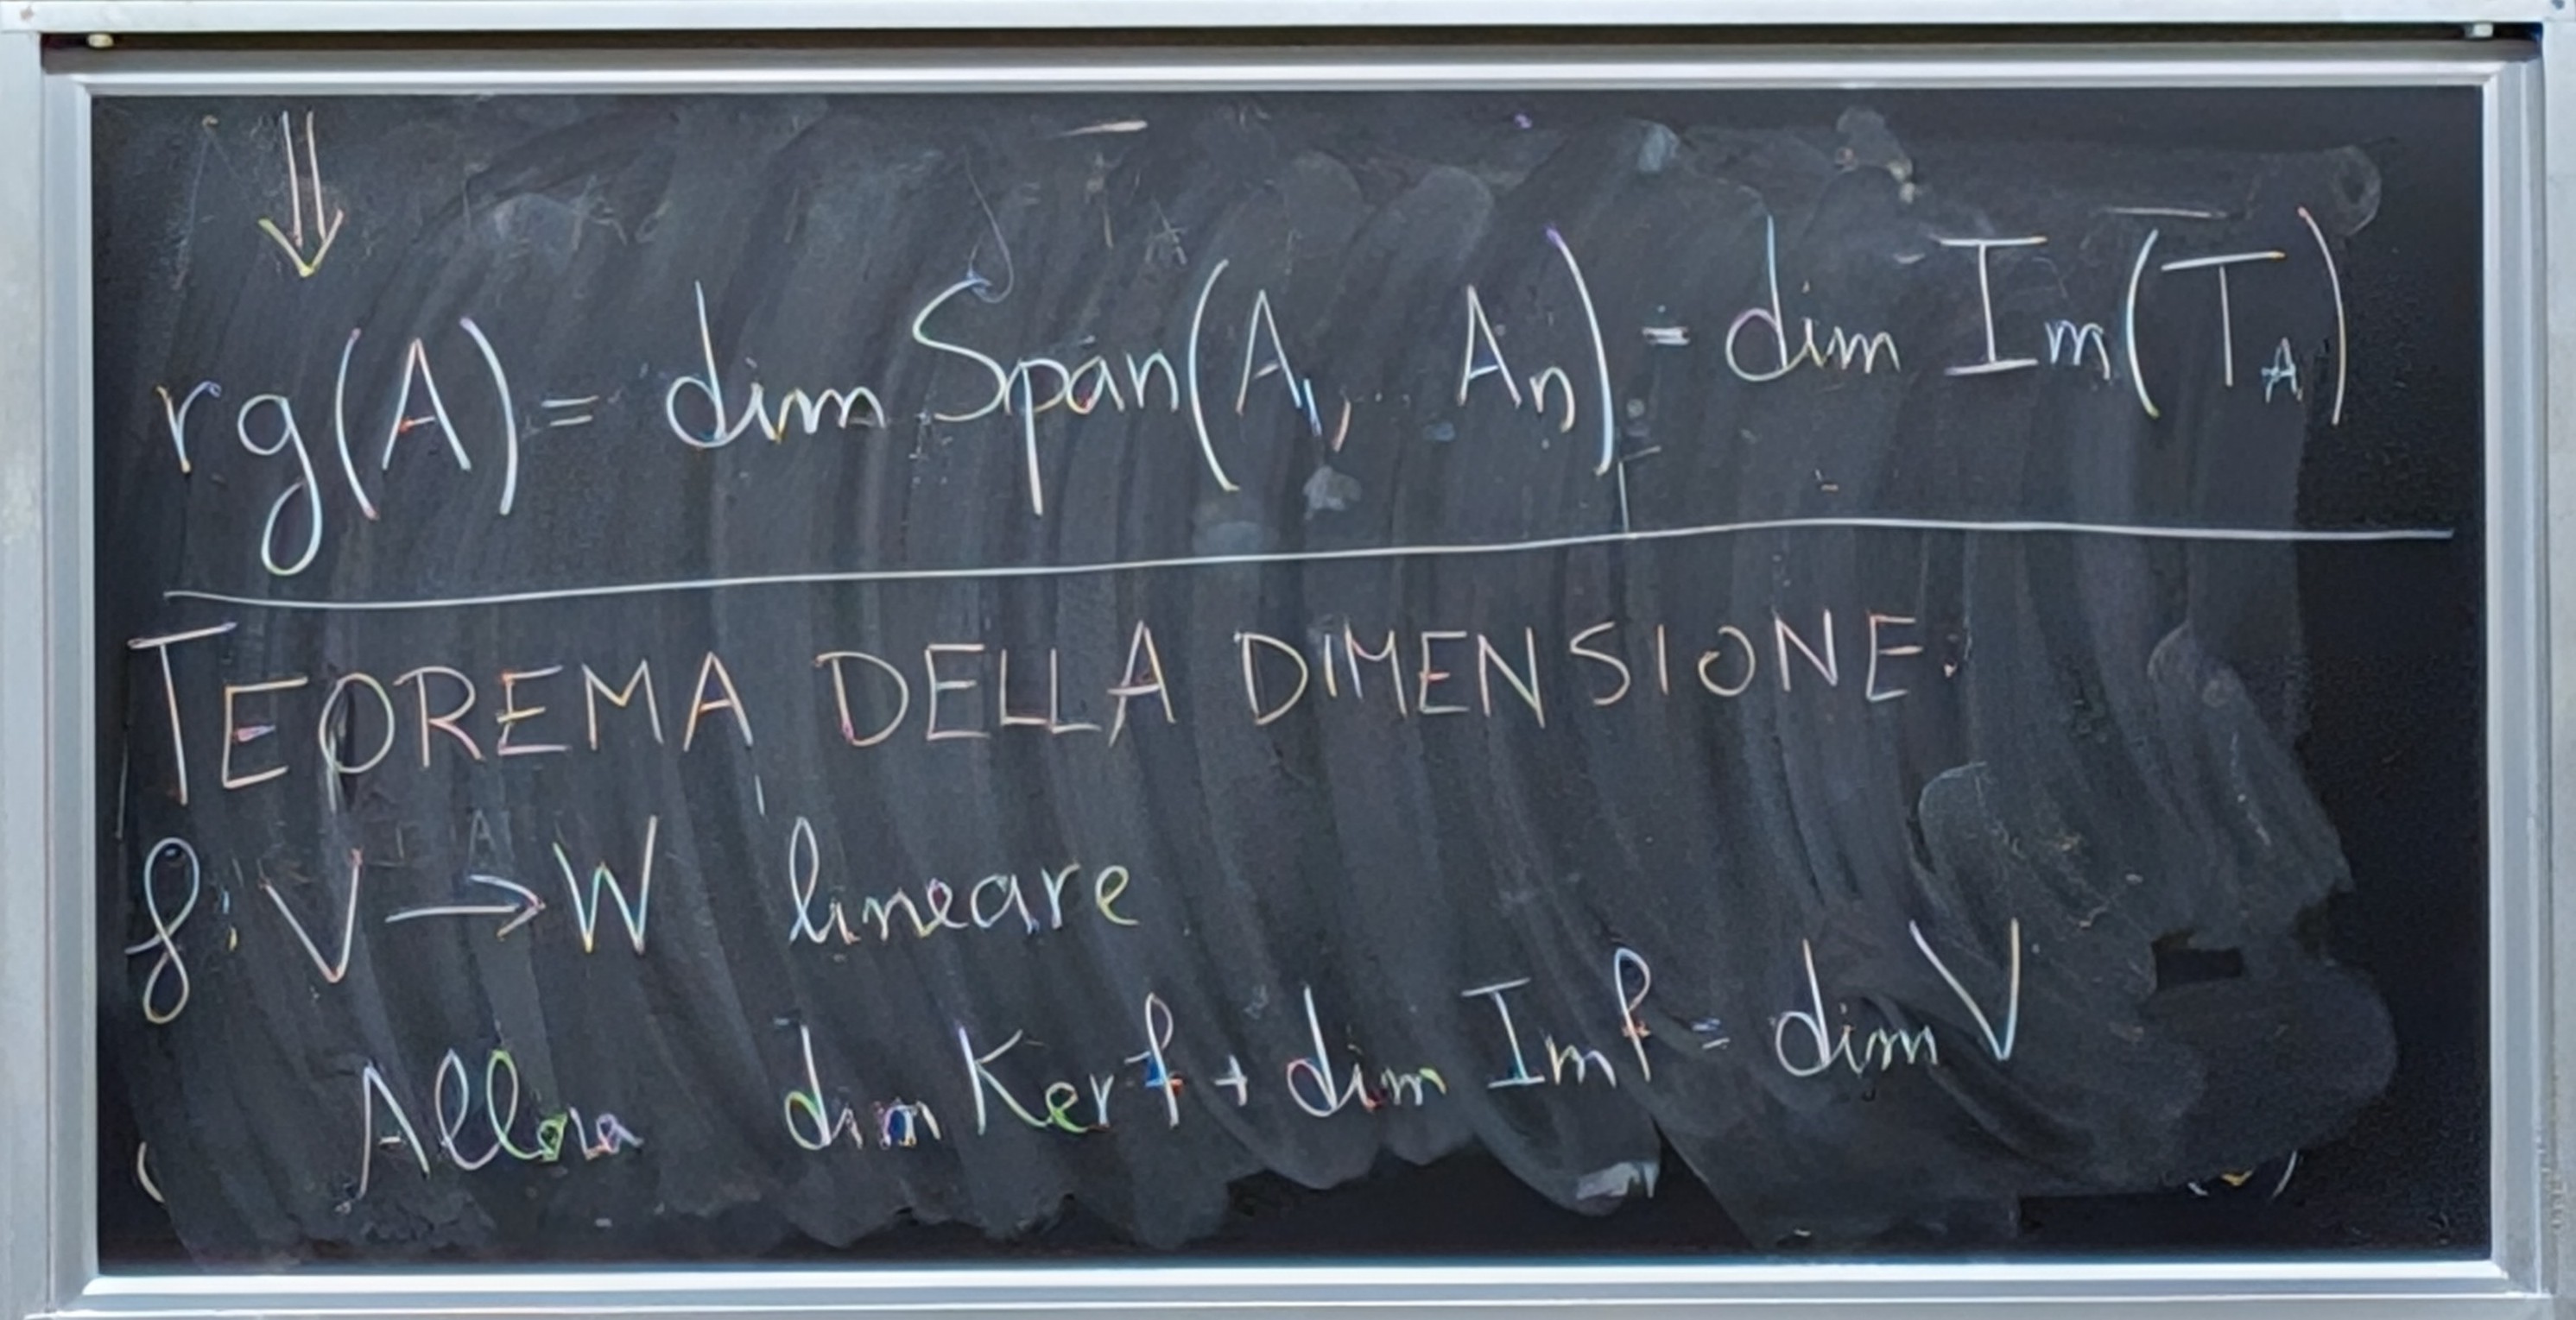 ⇓
rg(A) = dim Span(A₁, .. Aₙ) = dim Im(T_A)
TEOREMA DELLA DIMENSIONE.
f: V → W lineare
Allora dim Ker f + dim Im f = dim V